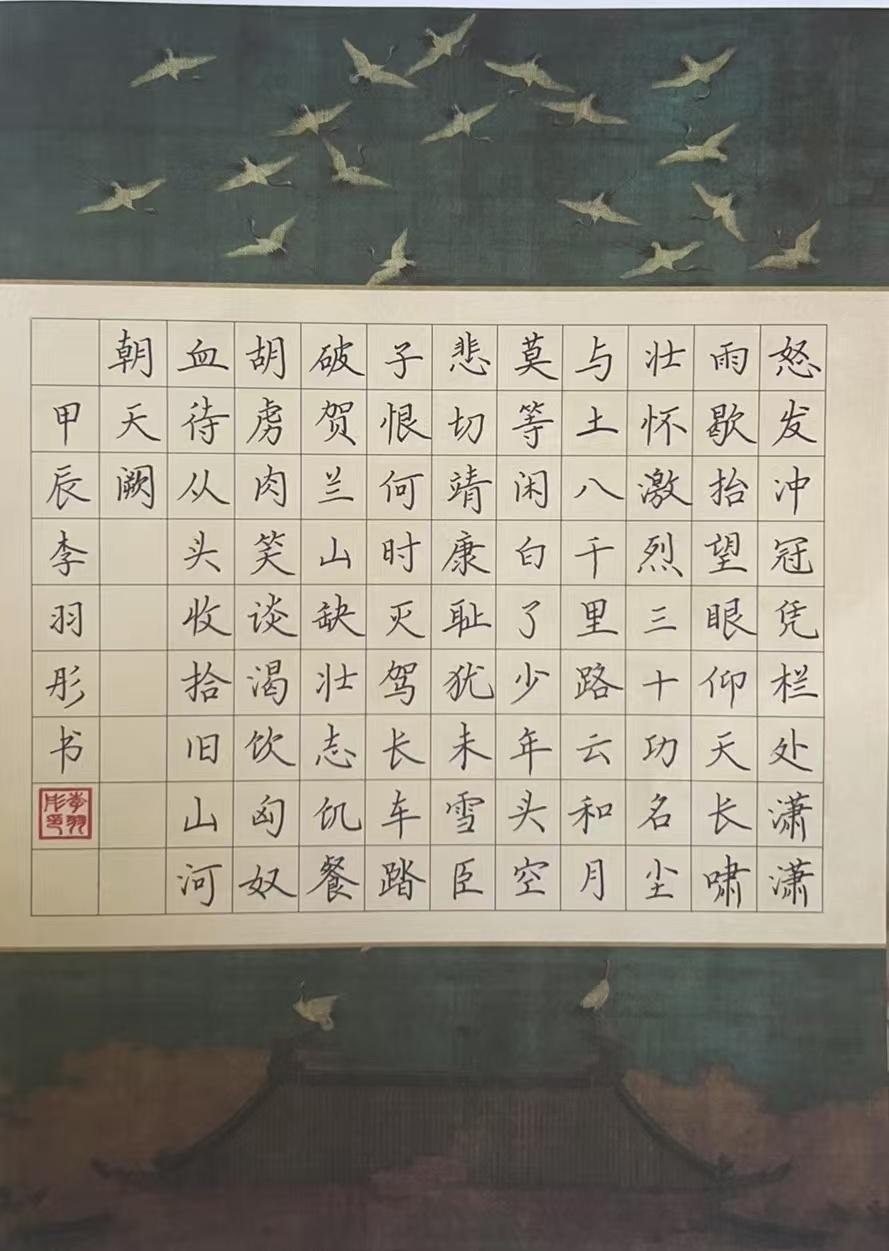 怒发冲冠凭栏处潇潇
雨歇抬望眼仰天长啸
壮怀激烈三十功名尘
与土八千里路云和月
莫等闲白了少年头空
悲切靖康耻犹未雪臣
子恨何时灭驾长车踏
破贺兰山缺壮志饥餐
胡虏肉笑谈渴饮匈奴
血待从头收拾旧山河
朝天阙
甲辰李羽彤书
李羽彤印